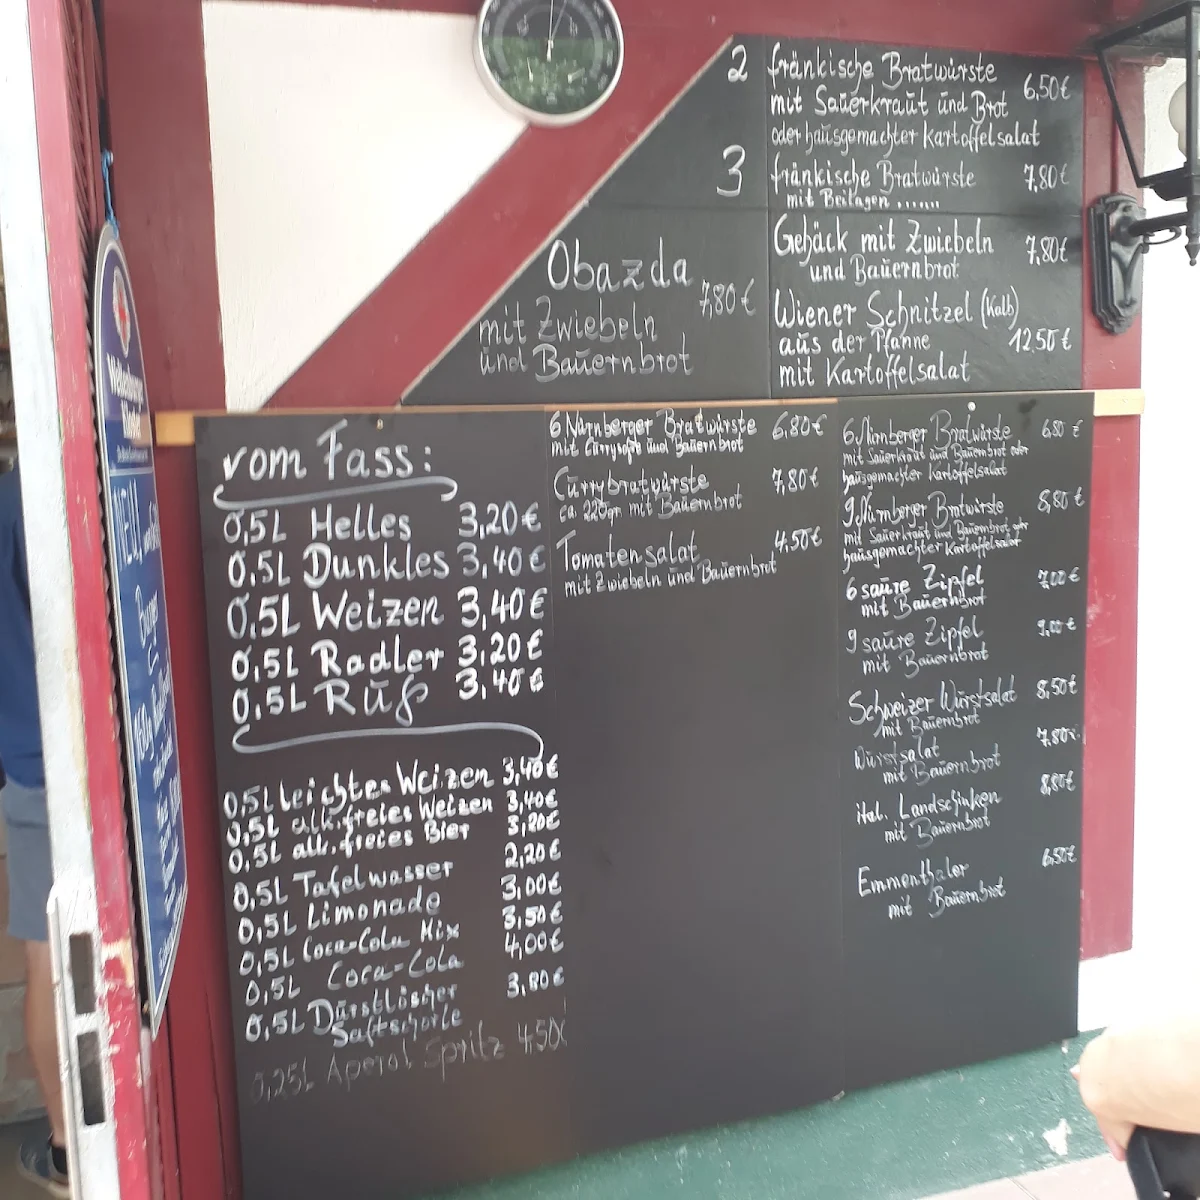 2 fränkische Bratwürste 6,50€
mit Sauerkraut und Brot
oder hausgemachter Kartoffelsalat
3 fränkische Bratwürste 7,80€
mit Beilagen .......
Gehäck mit Zwiebeln 7,80€
und Bauernbrot
Wiener Schnitzel (Kalb)
aus der Pfanne 12,50€
mit Kartoffelsalat
Obazda
7,80€
mit Zwiebeln
und Bauernbrot
vom Fass:
0,5L Helles 3,20€
0,5L Dunkles 3,40€
0,5L Weizen 3,40€
0,5L Radler 3,20€
0,5L Ruß 3,40€
0,5L leichtes Weizen 3,40€
0,5L alk.freies Weizen 3,40€
0,5L alk.freies Bier 3,20€
0,5L Tafelwasser 2,20€
0,5L Limonade 3,00€
0,5L Coca-Cola Mix 3,50€
0,5L Coca-Cola 4,00€
0,5L Durstlöscher 3,80€
Saftschorle
0,25L Aperol Spritz 4,50€
6 Nürnberger Bratwürste 6,80€
mit Currysoße und Bauernbrot
Currybratwürste 7,80€
ca. 220gr mit Bauernbrot
Tomatensalat 4,50€
mit Zwiebeln und Bauernbrot
6 Nürnberger Bratwürste 6,80€
mit Sauerkraut und Bauernbrot oder
hausgemachter Kartoffelsalat
9 Nürnberger Bratwürste 8,80€
mit Sauerkraut und Bauernbrot oder
hausgemachter Kartoffelsalat
6 saure Zipfel 7,00€
mit Bauernbrot
9 saure Zipfel 9,00€
mit Bauernbrot
Schweizer Wurstsalat 8,50€
mit Bauernbrot
Wurstsalat 7,80€
mit Bauernbrot
ital. Landschinken 8,80€
mit Bauernbrot
Emmenthaler 6,50€
mit Bauernbrot